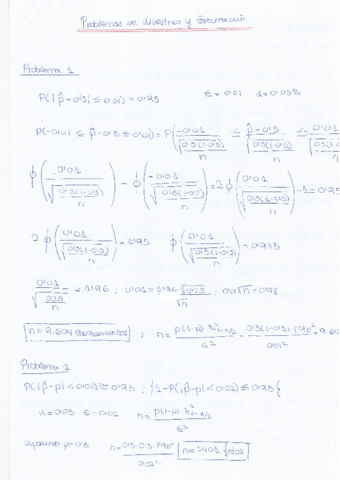 Problemas de Muestreo y Estimación
Problema 1
P(|p̂-0'5| ≤ 0'01) = 0'95    ε = 0'01    α = 0'05%
P(-0'01 ≤ p̂-0'5 ≤ 0'01) = P(-0'01/√(0'5(1-0'5)/n) ≤ p̂-0'5/√(0'5(1-0'5)/n) ≤ 0'01/√(0'5(1-0'5)/n)
ϕ(0'01/√(0'5(1-0'5)/n)) - ϕ(-0'01/√(0'5(1-0'5)/n)) = 2ϕ(0'01/√(0'5(1-0'5)/n)) - 1 = 0'95
2ϕ(0'01/√(0'5(1-0'5)/n)) = 1'95    ϕ(0'01/√(0'5(1-0'5)/n)) = 0'975
0'01/√(0'5(1-0'5)/n) = 1'96 ; 0'01 = 1'96 · √0'25/√n ; 0'01√n = 0'98
n = 9.604 ; n = p(1-p)·z²1-α/2 / ε² = 0'5(1-0'5)·1'96² / 0'01² = 9.60
Problema 2
P(|p̂-p| < 0'02) ≥ 0'95 ; {1-P(|p̂-p| < 0'02) ≤ 0'95{
α = 0'05    ε = 0'02    n = p(1-p)·z²1-α/2 / ε²
suponiendo p = 0'5    n = 0'5·0'5·1'96² / 0'02²    n = 2401